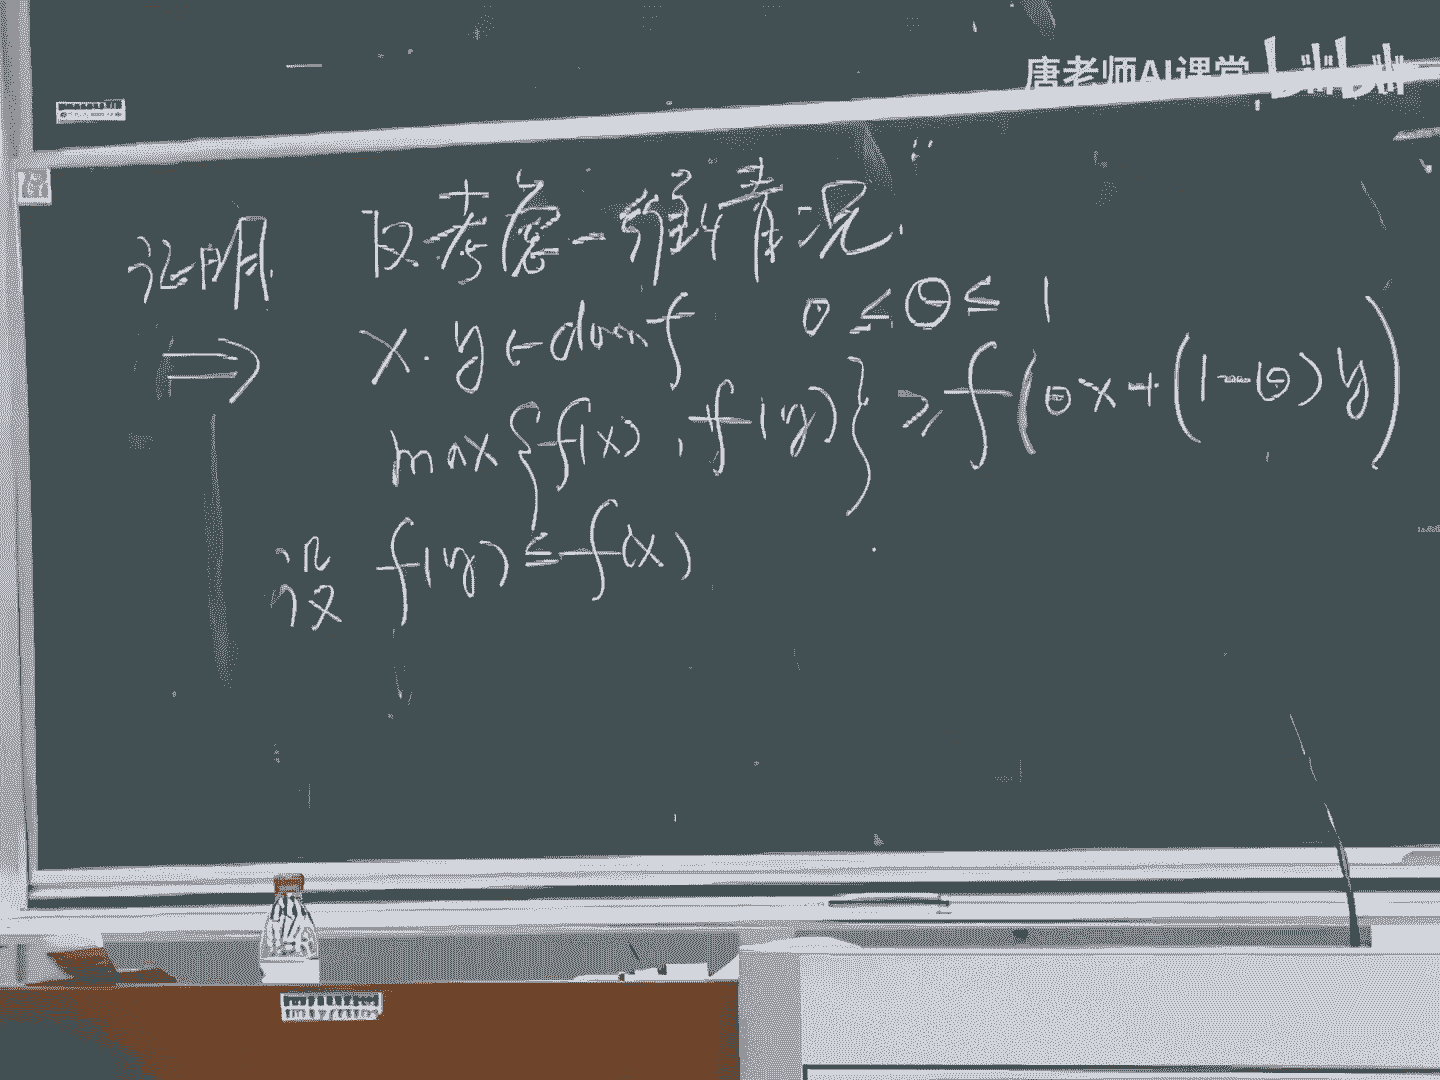 唐老师AI课堂 bilibili
证明 只考虑一维情况.
⇒ x.y∈domf 0≤θ≤1
max{f(x),f(y)}≥f(θx+(1-θ)y)
设 f(y)≤f(x)